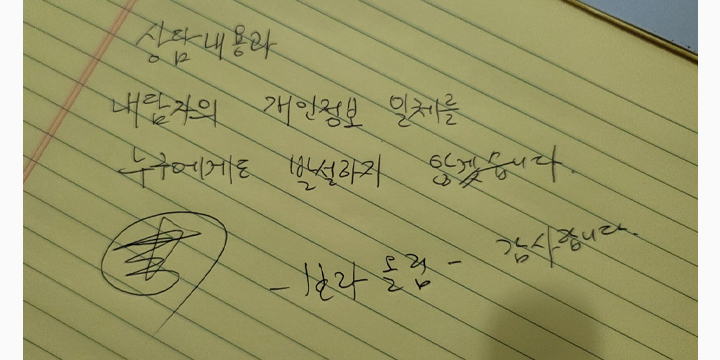 상담내용과
내담자의 개인정보 일체를
누구에게도 발설하지 않겠습니다.
감사합니다.
-보라 올림-